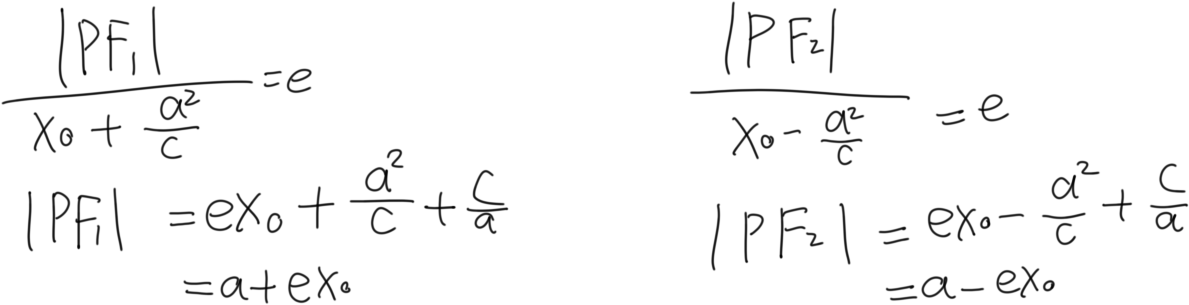 |PF₁| / (x₀ + a²/c) = e
|PF₁| = ex₀ + a²/c + c/a
= a + ex₀
|PF₂| / (x₀ - a²/c) = e
|PF₂| = ex₀ - a²/c + c/a
= a - ex₀